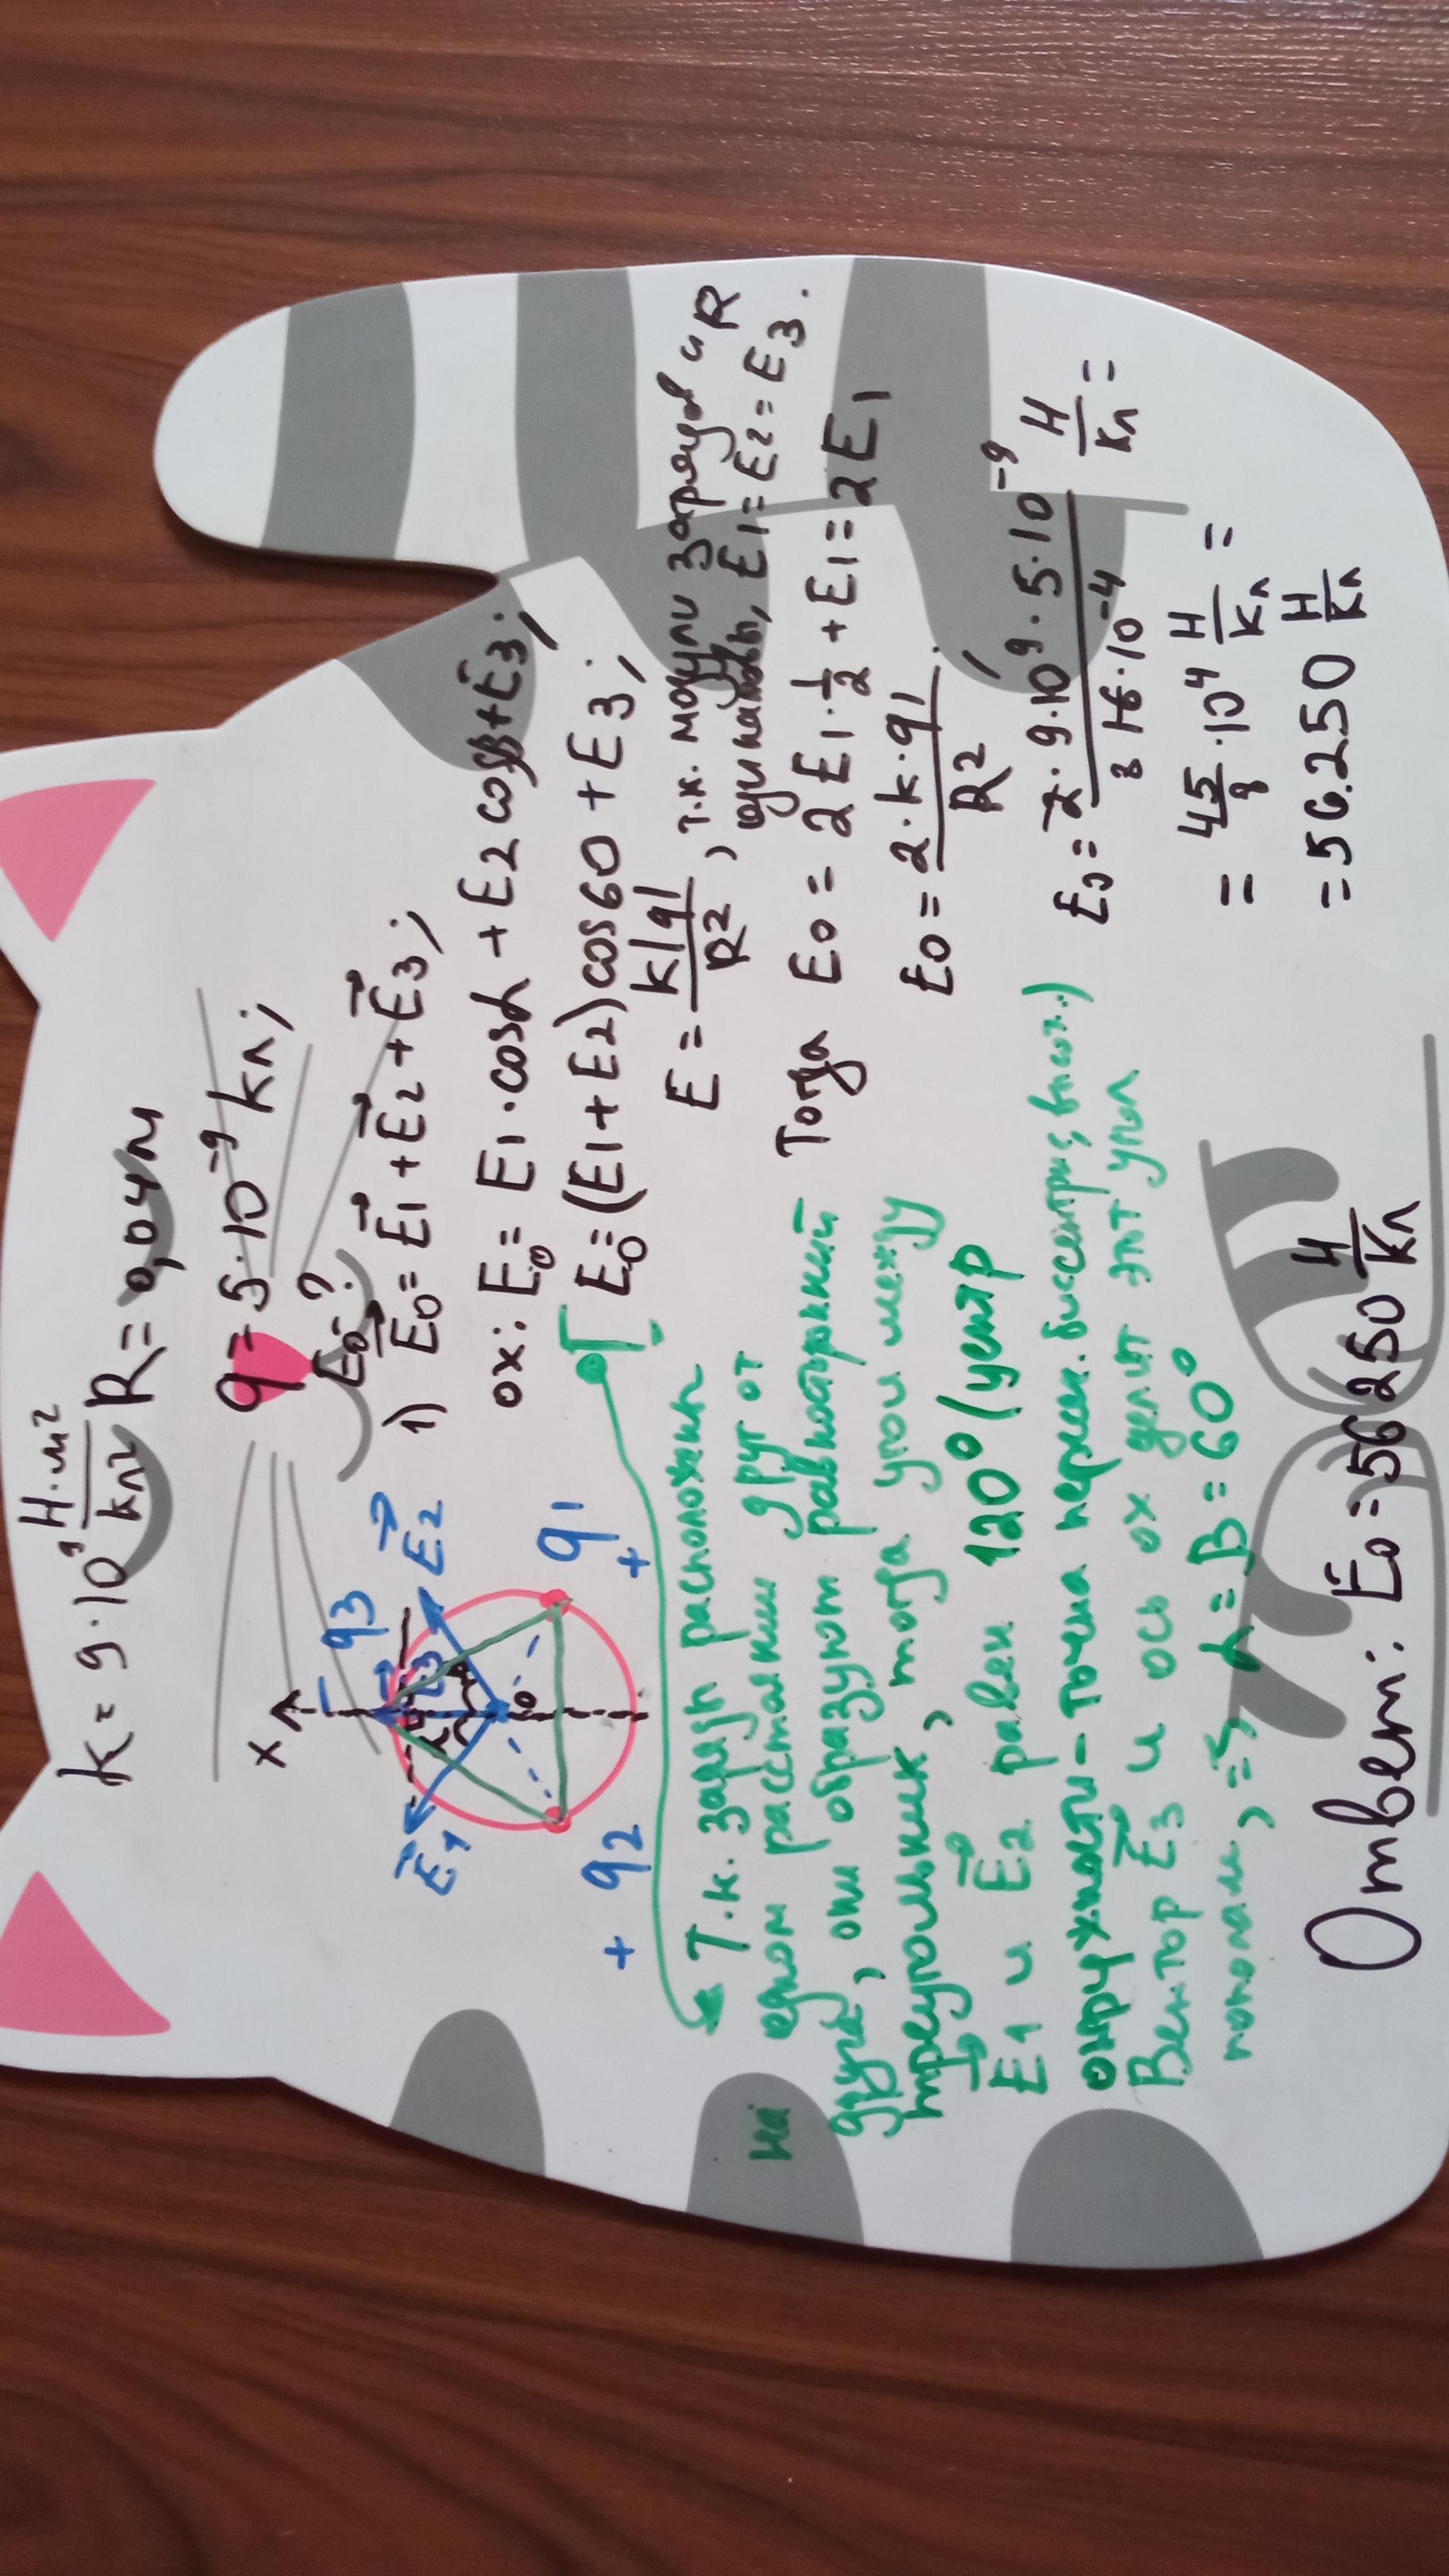 k = 9·10⁹ Н·м²/кл² R = 0,04м
q = 5·10⁻⁹ кл;
E₀ - ?
x
q3
E⃗1
E⃗3
E⃗2
α
β
0
+ q2
q1 +
1) E⃗0 = E⃗1 + E⃗2 + E⃗3;
ox: E0 = E1·cosα + E2cosβ + E3;
E0 = (E1+E2)cos60 + E3;
E = k|q|/R², т.к. модули зарядов и R
одинаковы, E1 = E2 = E3.
Тогда E0 = 2E1·1/2 + E1 = 2E1
E0 = 2·k·q1/R²;
E0 = 2·9·10⁹·5·10⁻⁹/8 16·10⁻⁴ Н/Кл =
= 45/8·10⁴ Н/Кл =
= 56.250 Н/Кл
Т.к. заряды расположены
на одном расстоянии друг от
друга, они образуют равносторонний
треугольник, тогда угол между
E⃗1 и E⃗2 равен 120° (центр
окружности - точка перес. биссектрис, высот.)
Вектор E⃗3 и ось ox делит этт угол
пополам, => α = β = 60°
Ответ: E0 = 56 250 Н/Кл